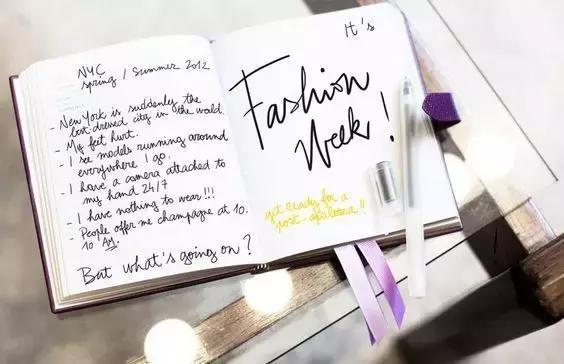 NYC
spring / Summer 2012
- New York is suddenly the
best dressed city in the world.
- My feet hurt.
- I see models running around
everywhere I go.
- I have a camera attached to
my hand 24/7
- I have nothing to wear!!!
- People offer me champagne at 10.
10 AM.
But what's going on?
It's
Fashion
Week!
get ready for a
post-apalooza!!